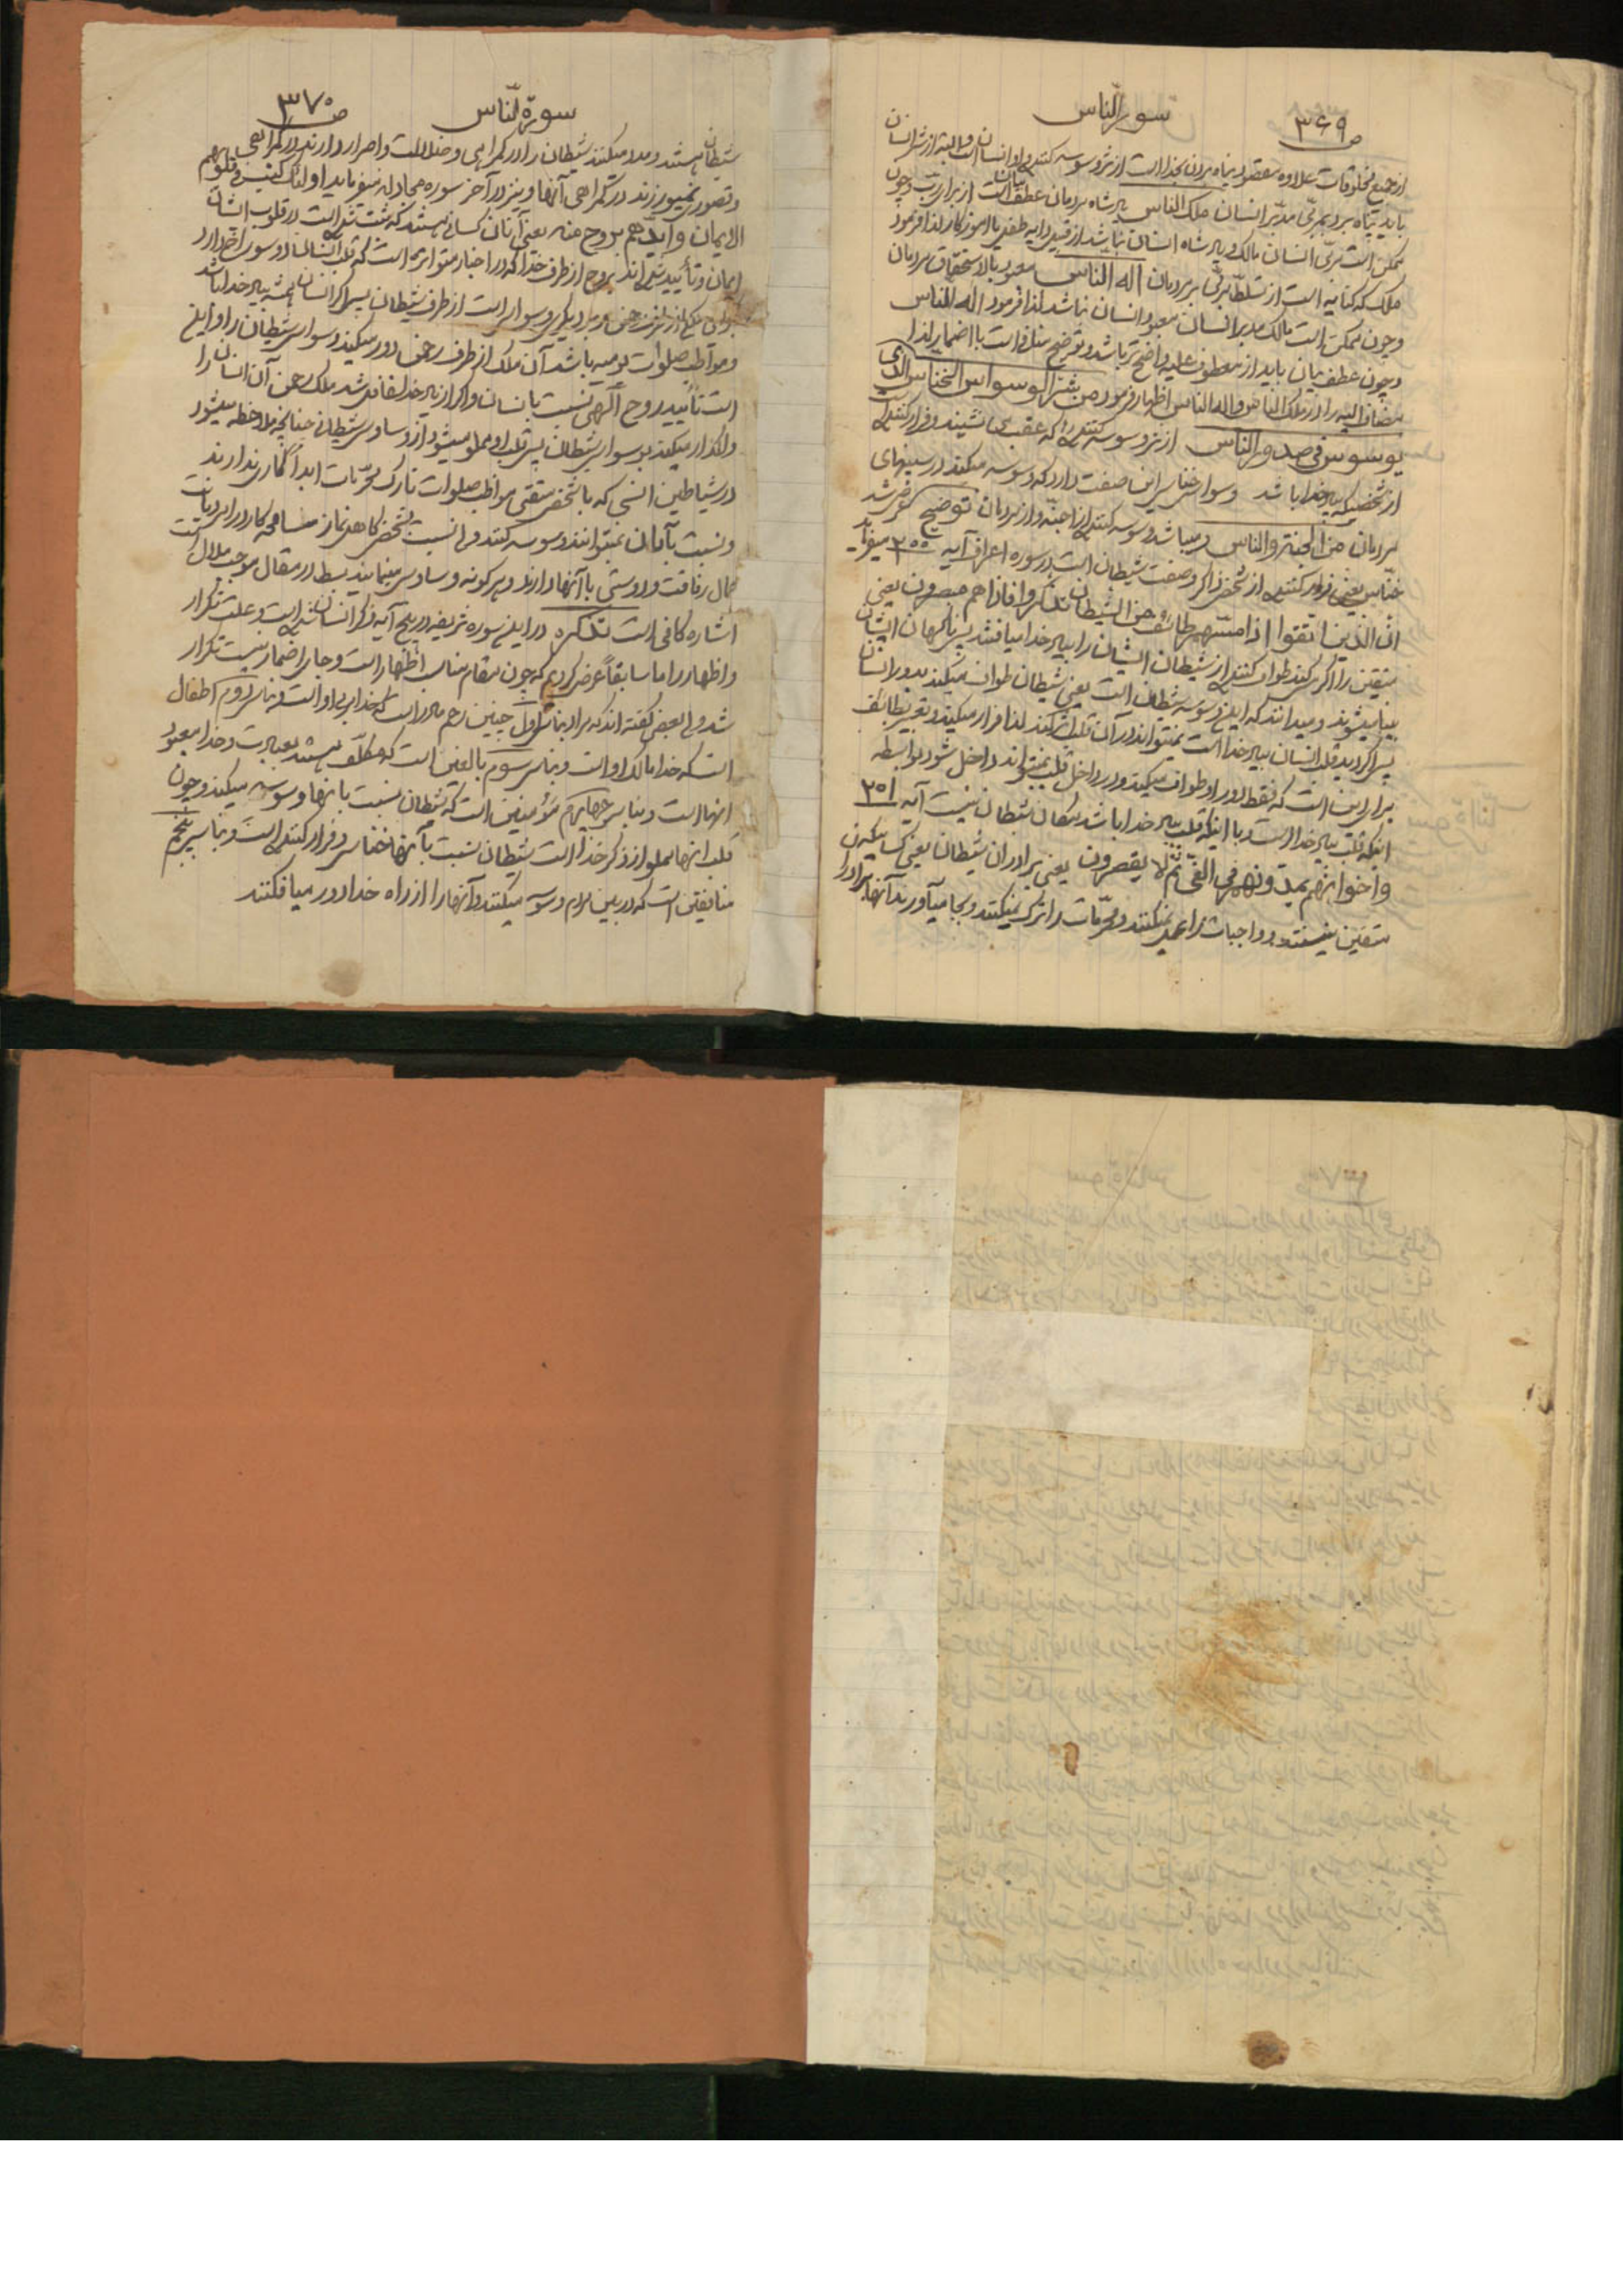 ص ۳۶۹
سورة النّاس
از جمیع مخلوقات علاوه مقصود پناه بردن بخدا است از شر وسوسه کننده
باید پناه برد بمربّی مدبّر انسان ملک الناس پادشاه مردمان عطف بیان است از برای ربّ و چون
ممکن است مربّی انسان مالک و پادشاه انسان نباشد از قبیل دایه طفل یا آموزکار لذا فرمود
ملک که کنایه است از تسلّط بزرگی بر مردمان اله الناس معبود بالاستحقاق مردمان
و چون ممکن است مالک مدبر انسان معبود انسان نباشد لذا فرمود اله الناس
و چون عطف بیان باید از معطوف علیه واضح تر باشد و توضیح منافی است با اضمار لذا
مضاف الیه را در ملک الناس و اله الناس اظهار فرمود من شرّ الوسواس الخناس الذی
یوسوس فی صدور الناس از شر وسوسه کننده که عقب می نشیند و فرار کننده است
از شخصیکه بیاد خدا باشد وسواس خناس این صفت دارد که وسوسه میکند در سینهای
مردمان من الجنة و الناس میباشد وسوسه کننده از اجنّه و از مردمان توضیح
خنّاس یعنی فرار کننده از شخص ذاکر و صفت شیطان است در سوره اعراف آیه ۲۰۰ میفرماید
انّ الذین اتقوا اذا مسّهم طائف من الشیطان تذکروا فاذا هم مبصرون یعنی
متقین را اگر مس کند طواف کننده از شیطان ایشان را بیاد خدا میافتند پس ناگهان ایشان
بینا میشوند و میدانند که این وسوسه شیطان است یعنی شیطان طواف میکند بدور انسان
پس اگر دید قلب انسان بیاد خدا است نمیتواند در آن قلب اثر کند لذا فرار میکند و تعبیر بطائف
برای این است که فقط دور او طواف میکند و در داخل قلب نمیتواند داخل شود بواسطه
اینکه قلب بیاد خدا است و با اینکه قلب بیاد خدا باشد مکان شیطان نیست آیه ۲۰۱
و اخوانهم یمدّونهم فی الغیّ ثمّ لا یقصرون یعنی برادران شیطان یعنی کسانیکه
متقین نیستند و واجبات را عمل نمیکنند و محرّمات را ترک نمیکنند و بجا میآورند آنها برادر
ص ۳۷۰
سورة النّاس
شیطان هستند و مدد میکنند شیطان را در گمراهی و ضلالت و اصرار دارند در گمراهی
و قصور نمیورزند در گمراهی آنها و نیز در آخر سوره مجادله میفرماید اولئک کتب فی قلوبهم
الایمان و ایّدهم بروح منه یعنی آنان کسانی هستند که ثبت شده است در قلوب ایشان
ایمان و تأیید شده اند بروح از طرف خدا که در اخبار متواتره است که قلب انسان دو سوراخ دارد
و دیگری وسواس است از طرف شیطان پس اگر انسان همیشه بیاد خدا باشد
و مواظب صلوات یومیه باشد آن ملک از طرف رحمن دور میکند وسواس شیطان را و این
است تأیید روح الهی نسبت بانسان و اگر از یاد خدا غافل شد ملک رحمن آن انسان را
واگذار میکند بوسواس شیطان پس قلب او مملو میشود از وساوس شیطان چنانچه ملاحظه میشود
در شیاطین انسی که با شخص متقی مواظب صلوات تارک محرّمات ابداً کاری ندارند
و نسبت بآنان نمیتوانند وسوسه کنند ولی نسبت بشخص کاهل نماز مسامحه کار در امر دیانت
کمال رفاقت و دوستی با آنها دارند و هر گونه وساوس مینمایند بسط در مقال موجب ملال است
اشاره کافی است تذکره در این سوره شریفه در پنج آیه ذکر انسان شده است و علت تکرار
و اظهار را ما سابقاً عرض کردیم که چون مقام مناسب اظهار است و جای اضمار نیست تکرار
شد ولی بعضی گفته اند که مراد بناس اوّل جنین رحم مادر است که خدا مربی او است و بناس دوم اطفال
است که خدا مالک او است و بناس سوم بالغین است که مکلّف هستند بعبادت و خدا معبود
انها است و بناس چهارم مؤمنین است که شیطان نسبت بانها وسوسه میکند و چون
قلب انها مملو از ذکر خدا است شیطان نسبت بآنها خناس و فرار کننده است و بناس پنجم
منافقین است که در بین مردم وسوسه میکنند و آنها را از راه خدا دور میافکنند